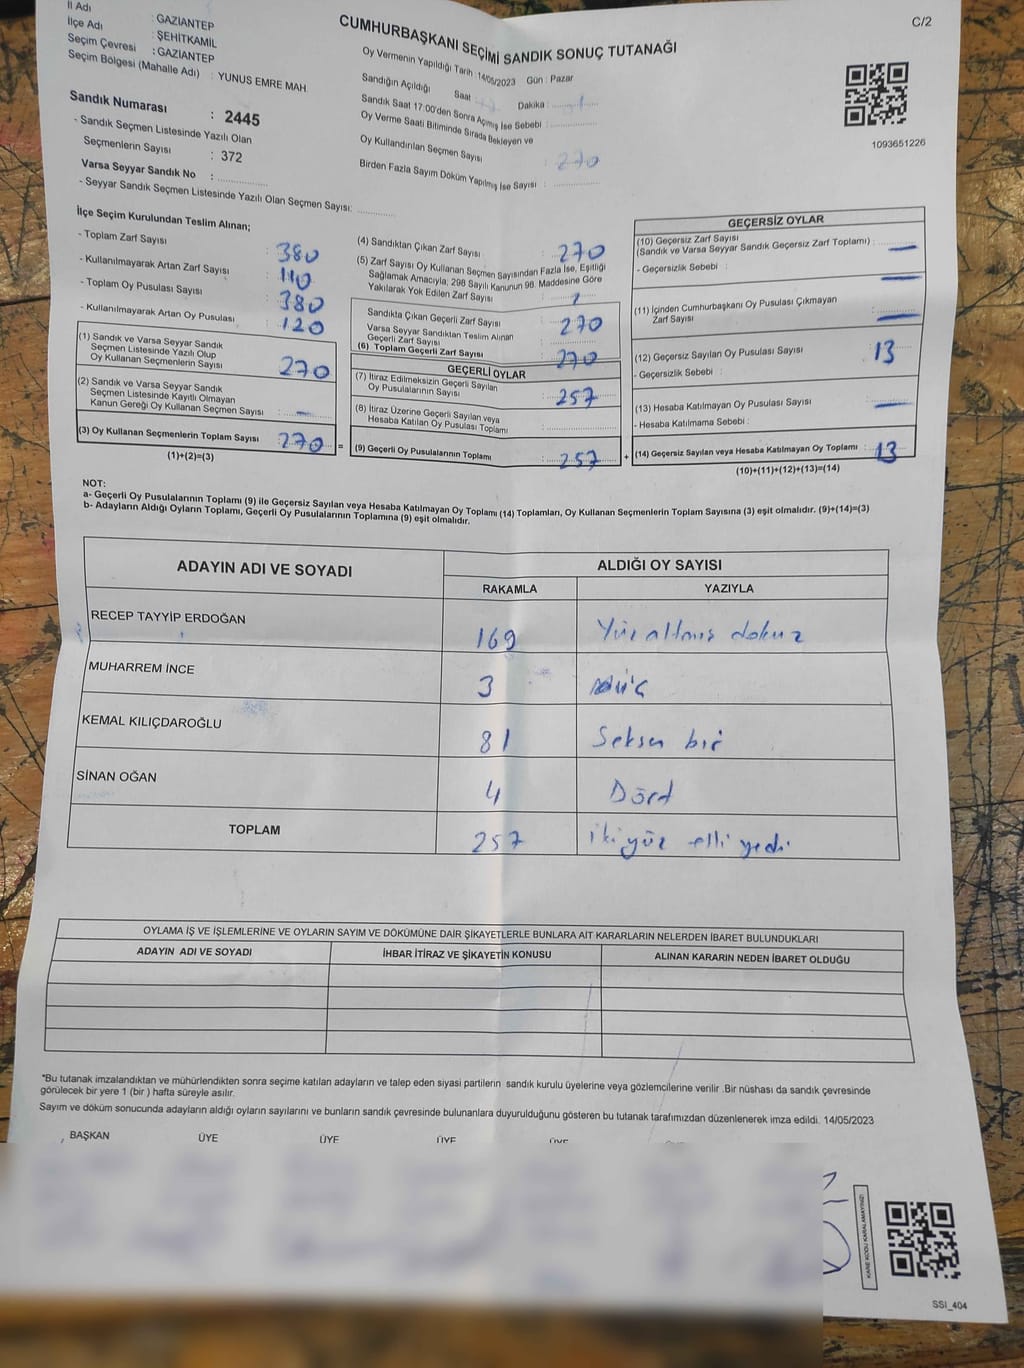 İl Adı : GAZİANTEP
İlçe Adı : ŞEHİTKAMİL
Seçim Çevresi : GAZİANTEP
Seçim Bölgesi (Mahalle Adı) : YUNUS EMRE MAH.
Sandık Numarası : 2445
- Sandık Seçmen Listesinde Yazılı Olan
Seçmenlerin Sayısı : 372
Varsa Seyyar Sandık No :
- Seyyar Sandık Seçmen Listesinde Yazılı Olan Seçmen Sayısı:
CUMHURBAŞKANI SEÇİMİ SANDIK SONUÇ TUTANAĞI
C/2
Oy Vermenin Yapıldığı Tarih : 14/05/2023 Gün : Pazar
Sandığın Açıldığı Saat Dakika :
Sandık Saat 17:00'den Sonra Açmış İse Sebebi :
Oy Verme Saati Bitiminde Sırada Bekleyen ve
Oy Kullandırılan Seçmen Sayısı : 270
Birden Fazla Sayım Döküm Yapılmış İse Sayısı :
1093651226
İlçe Seçim Kurulundan Teslim Alınan;
- Toplam Zarf Sayısı : 380
- Kullanılmayarak Artan Zarf Sayısı : 110
- Toplam Oy Pusulası Sayısı : 380
- Kullanılmayarak Artan Oy Pusulası : 120
(1) Sandık ve Varsa Seyyar Sandık
Seçmen Listesinde Yazılı Olup
Oy Kullanan Seçmenlerin Sayısı : 270
(2) Sandık ve Varsa Seyyar Sandık
Seçmen Listesinde Kayıtlı Olmayan
Kanun Gereği Oy Kullanan Seçmen Sayısı : —
(3) Oy Kullanan Seçmenlerin Toplam Sayısı : 270 =
(1)+(2)=(3)
(4) Sandıktan Çıkan Zarf Sayısı : 270
(5) Zarf Sayısı Oy Kullanan Seçmen Sayısından Fazla İse, Eşitliği
Sağlamak Amacıyla, 298 Sayılı Kanunun 98. Maddesine Göre
Yakılarak Yok Edilen Zarf Sayısı :
Sandıkta Çıkan Geçerli Zarf Sayısı : 270
Varsa Seyyar Sandıktan Teslim Alınan
Geçerli Zarf Sayısı :
(6) Toplam Geçerli Zarf Sayısı : 270
GEÇERLİ OYLAR
(7) İtiraz Edilmeksizin Geçerli Sayılan
Oy Pusulalarının Sayısı : 257
(8) İtiraz Üzerine Geçerli Sayılan veya
Hesaba Katılan Oy Pusulası Toplamı :
(9) Geçerli Oy Pusulalarının Toplamı : 257 +
GEÇERSİZ OYLAR
(10) Geçersiz Zarf Sayısı
(Sandık ve Varsa Seyyar Sandık Geçersiz Zarf Toplamı) : —
- Geçersizlik Sebebi : —
(11) İçinden Cumhurbaşkanı Oy Pusulası Çıkmayan
Zarf Sayısı : —
(12) Geçersiz Sayılan Oy Pusulası Sayısı : 13
- Geçersizlik Sebebi :
(13) Hesaba Katılmayan Oy Pusulası Sayısı : —
- Hesaba Katılmama Sebebi :
(14) Geçersiz Sayılan veya Hesaba Katılmayan Oy Toplamı : 13
(10)+(11)+(12)+(13)=(14)
NOT:
a- Geçerli Oy Pusulalarının Toplamı (9) ile Geçersiz Sayılan veya Hesaba Katılmayan Oy Toplamı (14) Toplamları, Oy Kullanan Seçmenlerin Toplam Sayısına (3) eşit olmalıdır. (9)+(14)=(3)
b- Adayların Aldığı Oyların Toplamı, Geçerli Oy Pusulalarının Toplamına (9) eşit olmalıdır.
ADAYIN ADI VE SOYADI
ALDIĞI OY SAYISI
RAKAMLA YAZIYLA
RECEP TAYYİP ERDOĞAN 169 Yüz altmış dokuz
MUHARREM İNCE 3 üç
KEMAL KILIÇDAROĞLU 81 Seksen bir
SİNAN OĞAN 4 Dört
TOPLAM 257 iki yüz elli yedi
OYLAMA İŞ VE İŞLEMLERİNE VE OYLARIN SAYIM VE DÖKÜMÜNE DAİR ŞİKAYETLERLE BUNLARA AİT KARARLARIN NELERDEN İBARET BULUNDUKLARI
ADAYIN ADI VE SOYADI İHBAR İTİRAZ VE ŞİKAYETİN KONUSU ALINAN KARARIN NEDEN İBARET OLDUĞU
*Bu tutanak imzalandıktan ve mühürlendikten sonra seçime katılan adayların ve talep eden siyasi partilerin sandık kurulu üyelerine veya gözlemcilerine verilir .Bir nüshası da sandık çevresinde
görülecek bir yere 1 (bir ) hafta süreyle asılır.
Sayım ve döküm sonucunda adayların aldığı oyların sayılarını ve bunların sandık çevresinde bulunanlara duyurulduğunu gösteren bu tutanak tarafımızdan düzenlenerek imza edildi. 14/05/2023
BAŞKAN ÜYE ÜYE ÜYE ÜYE
KARE KODU KARALAMAYINIZ!
SSI_404